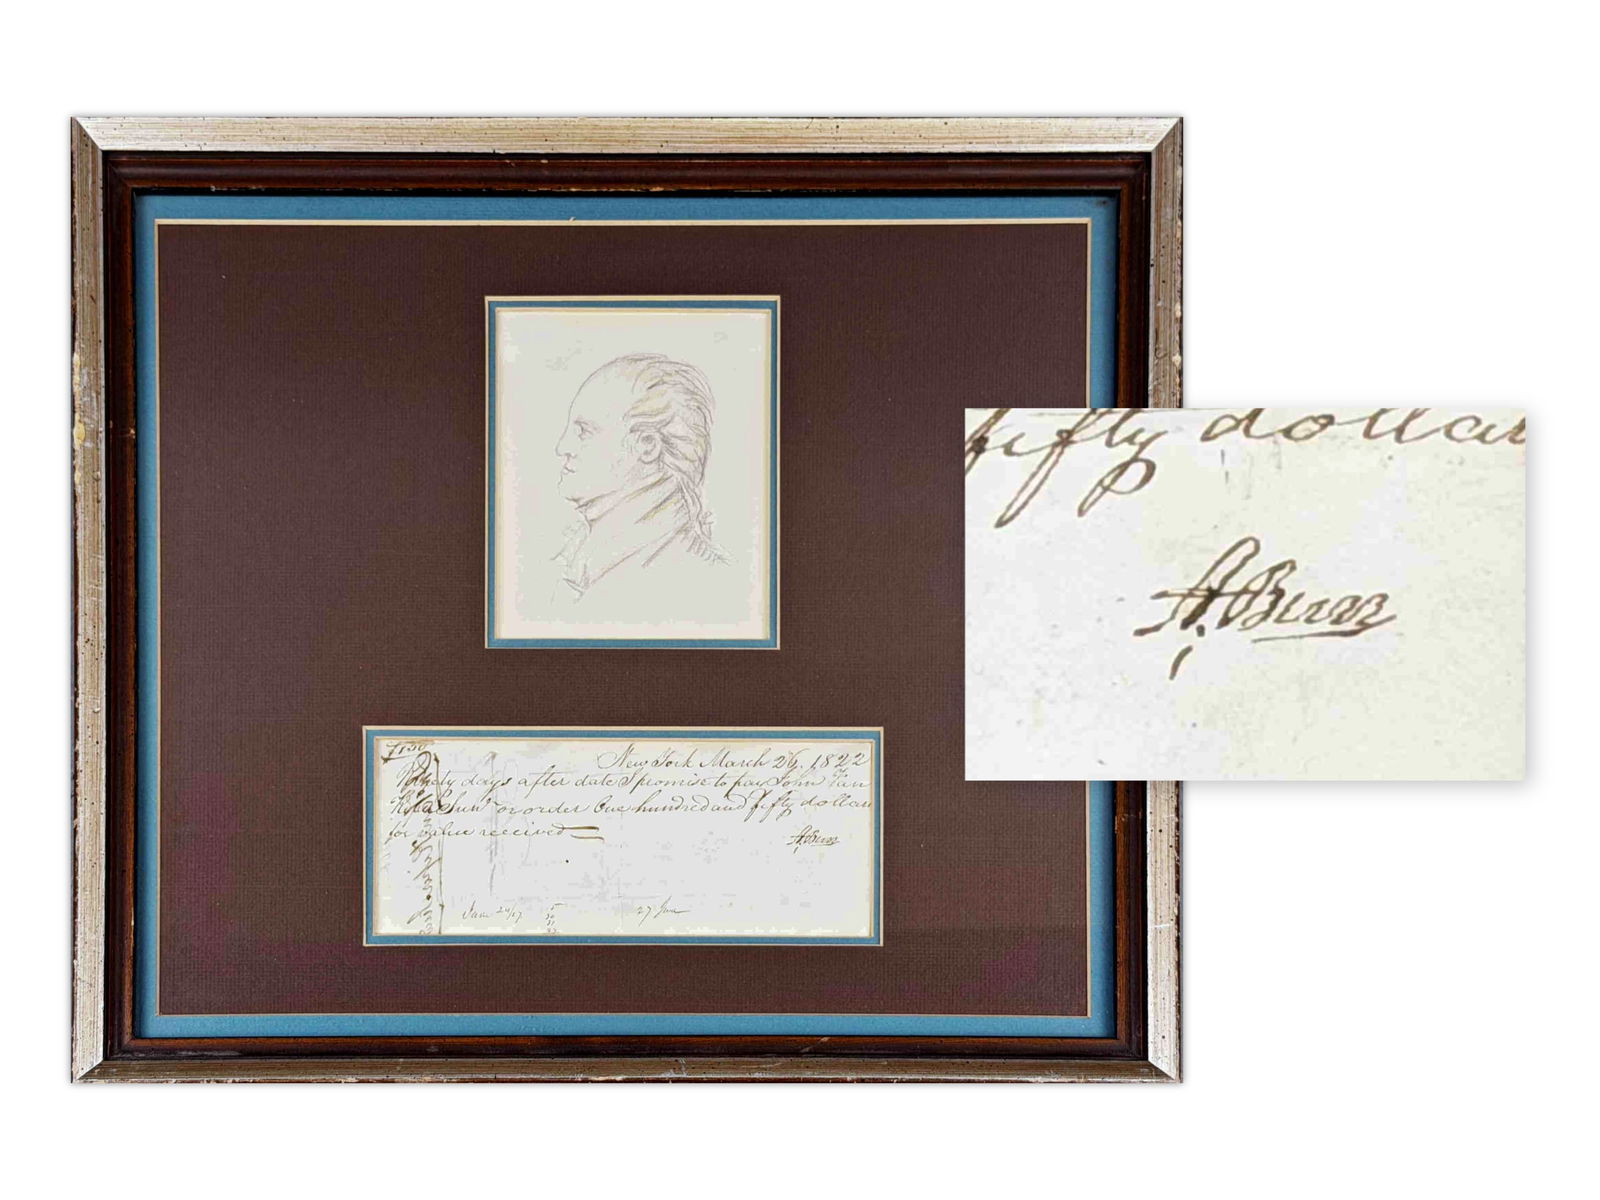 $150
New York March 26. 1822
Ninety days after date I promise to pay John Van
or order One hundred and fifty dollars
for value received
A. Burr
June 24/27
5
30
31
27 June
fifty dollar
A. Burr